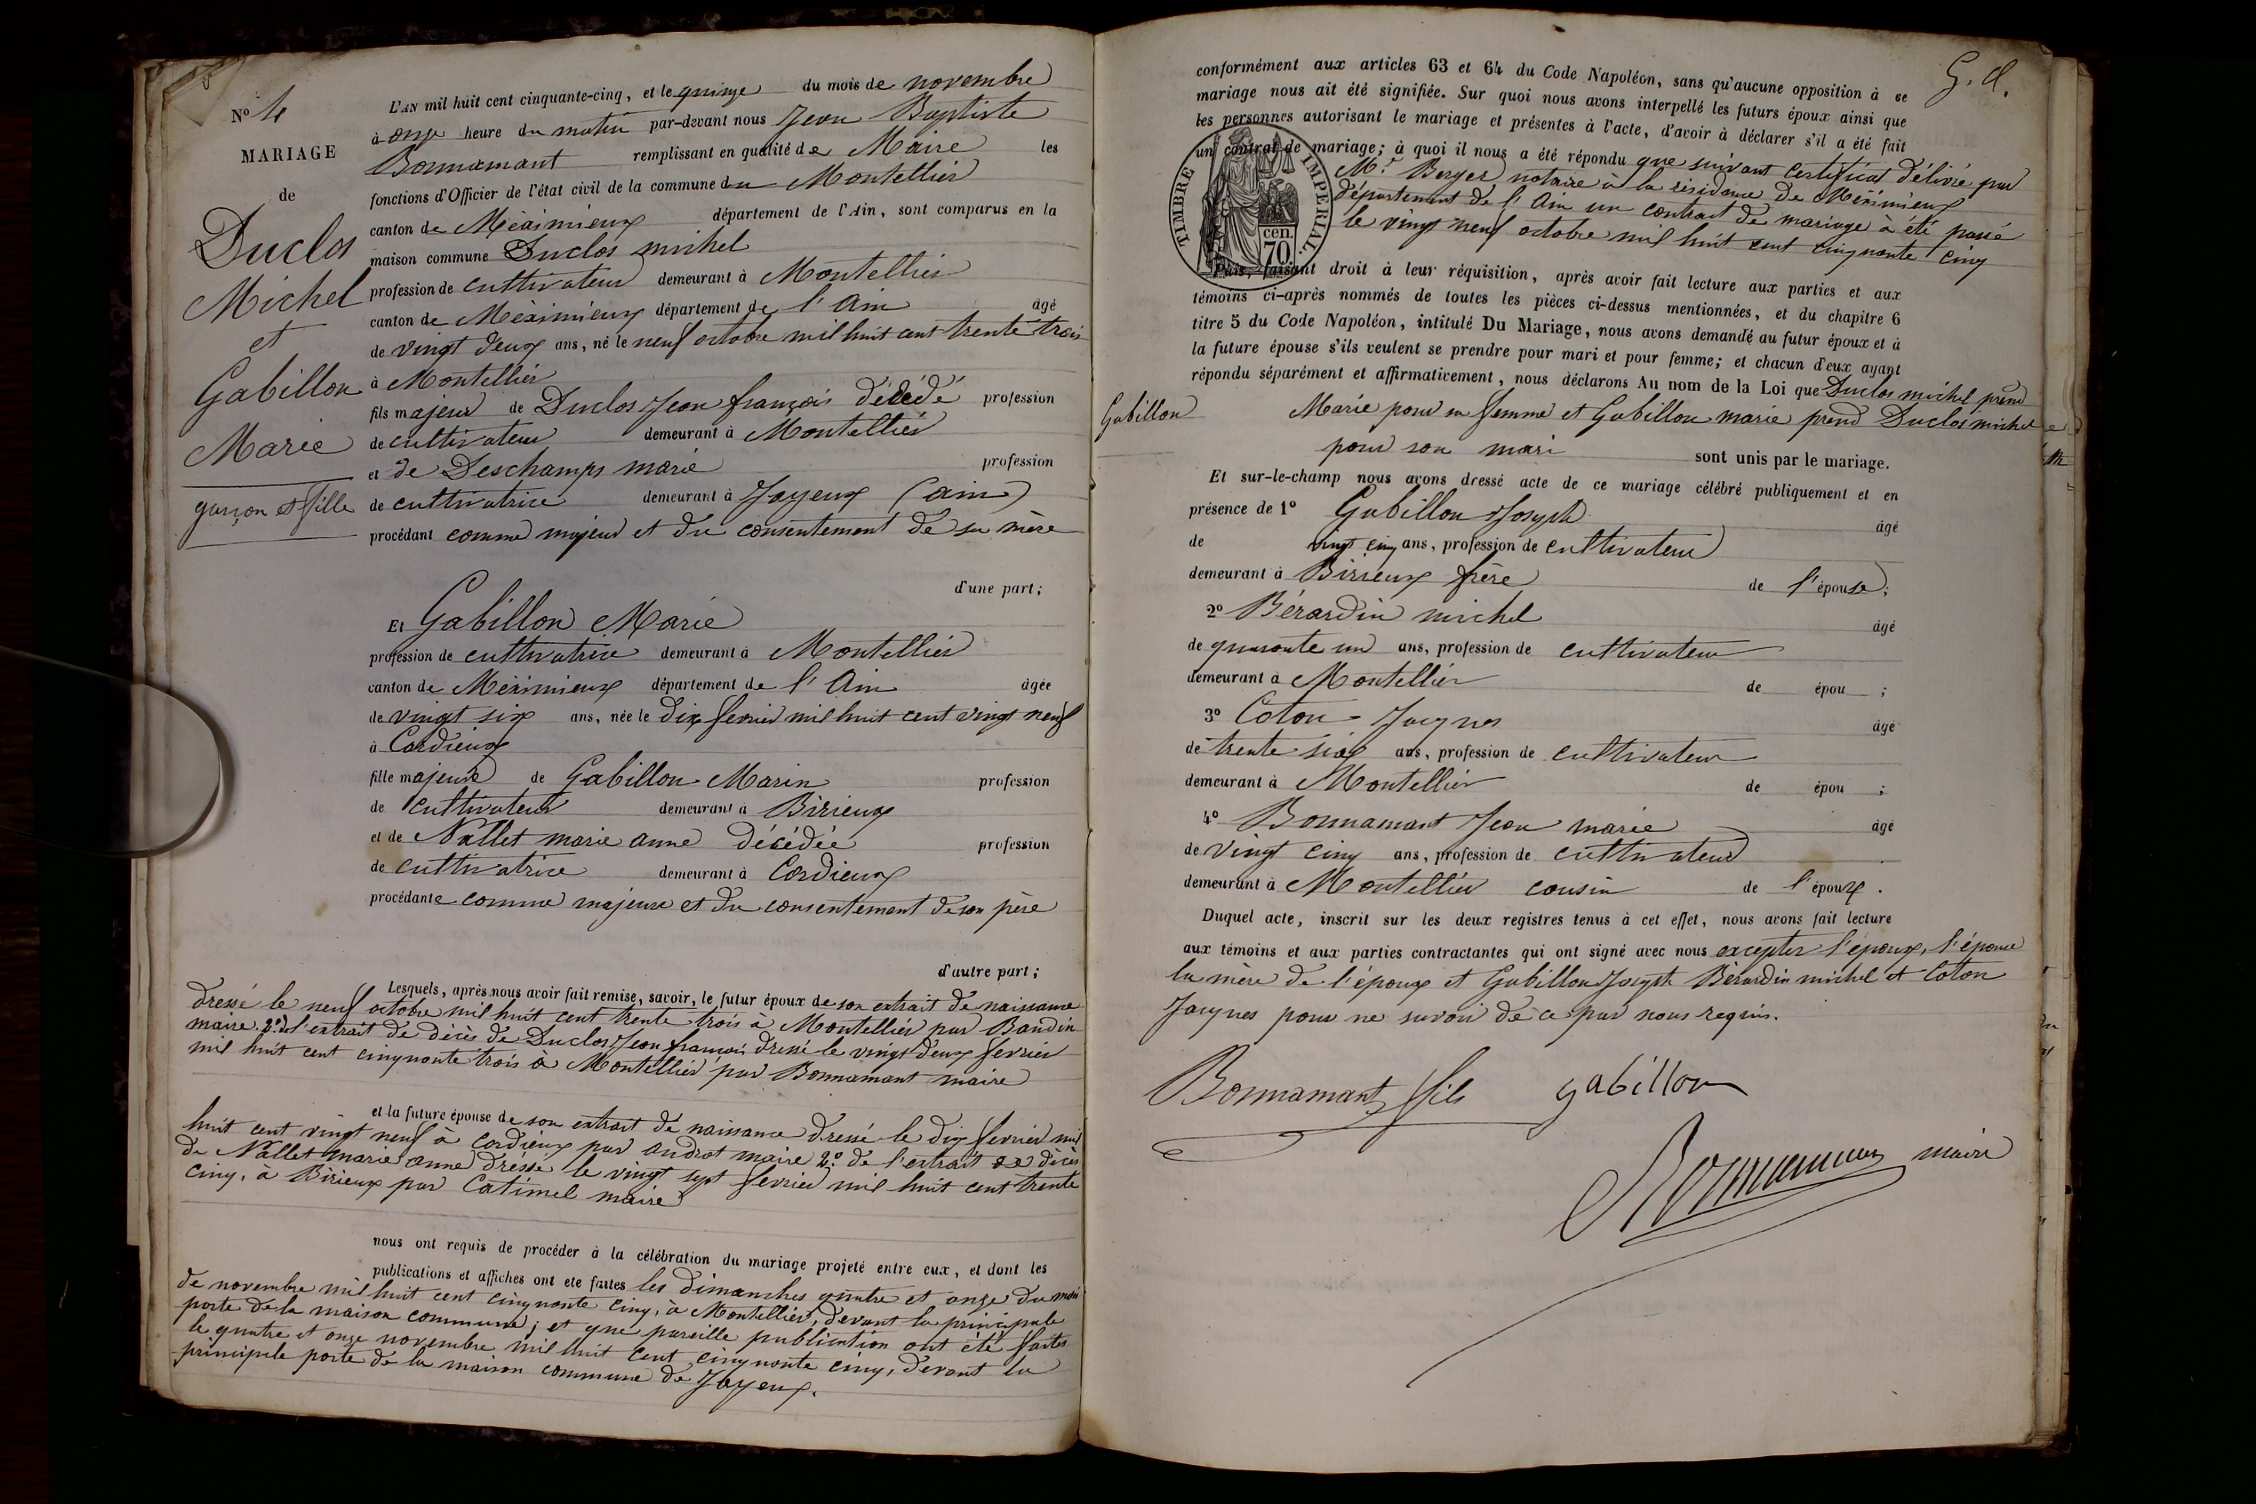 No 4
MARIAGE
de
Duclos
Michel
et
Gabillon
Marie
garçon et fille
L'AN mil huit cent cinquante-cinq, et le quinze du mois de novembre
à onze heure du matin par-devant nous Jean Baptiste
Bonnamant remplissant en qualité de Maire les
fonctions d'Officier de l'état civil de la commune du Montellier
canton de Méximieux département de l'Ain, sont comparus en la
maison commune Duclos michel
profession de cultivateur demeurant à Montellier
canton de Méximieux département de l'Ain âgé
de vingt deux ans, né le neuf octobre mil huit cent trente trois
à Montellier
fils majeur de Duclos Jean françois décédé profession
de cultivateur demeurant à Montellier
et de Deschamps marie profession
de cultivatrice demeurant à Joyeux (ain)
procédant comme majeur et du consentement de sa mère
d'une part;
Et Gabillon Marie
profession de cultivatrice demeurant à Montellier
canton de Méximieux département de l'Ain âgée
de vingt six ans, née le dix fevrier mil huit cent vingt neuf
à Cordieux
fille majeure de Gabillon Marin profession
de cultivateur demeurant à Birieux
et de Nallet marie anne décédée profession
de cultivatrice demeurant à Cordieux
procédante comme majeure et du consentement de son père
d'autre part;
Lesquels, après nous avoir fait remise, savoir, le futur époux de son extrait de naissance
dressé le neuf octobre mil huit cent trente trois à Montellier par Baudin
maire. 2o de l'extrait de décès de Duclos Jean françois dressé le vingt deux fevrier
mil huit cent cinquante trois à Montellier par Bonnamant maire
et la future épouse de son extrait de naissance dressé le dix fevrier mil
huit cent vingt neuf à Cordieux par Androt maire 2o de l'extrait de décès
de Nallet marie anne dressé le vingt sept fevrier mil huit cent trente
cinq, à Birieux par Catimel maire
nous ont requis de procéder à la célébration du mariage projeté entre eux, et dont les
publications et affiches ont été faites les dimanches quatre et onze du mois
de novembre mil huit cent cinquante cinq, à Montellier, devant la principale
porte de la maison commune; et que pareille publication ont été faites
le quatre et onze novembre mil huit cent cinquante cinq, devant la
principale porte de la maison commune de Joyeux.
G. d.
conformément aux articles 63 et 64 du Code Napoléon, sans qu'aucune opposition à ce
mariage nous ait été signifiée. Sur quoi nous avons interpellé les futurs époux ainsi que
les personnes autorisant le mariage et présentes à l'acte, d'avoir à déclarer s'il a été fait
un contrat de mariage; à quoi il nous a été répondu que suivant certificat délivré par
Mr Berger notaire à la résidence de Méximieux
département de l'Ain un contrat de mariage à été passé
le vingt neuf octobre mil huit cent cinquante cinq
TIMBRE IMPERIAL
cen.
70
Puis, faisant droit à leur réquisition, après avoir fait lecture aux parties et aux
témoins ci-après nommés de toutes les pièces ci-dessus mentionnées, et du chapitre 6
titre 5 du Code Napoléon, intitulé Du Mariage, nous avons demandé au futur époux et à
la future épouse s'ils veulent se prendre pour mari et pour femme; et chacun d'eux ayant
répondu séparément et affirmativement, nous déclarons Au nom de la Loi que Duclos michel prend
Gabillon Marie pour sa femme et Gabillon marie prend Duclos michel
pour son mari sont unis par le mariage.
Et sur-le-champ nous avons dressé acte de ce mariage célébré publiquement et en
présence de 1o Gabillon Joseph âgé
de vingt cinq ans, profession de cultivateur
demeurant à Birieux frère de l'épouse;
2o Bérardin michel âgé
de quarante un ans, profession de cultivateur
demeurant à Montellier de épou ;
3o Coton Jacques âgé
de trente six ans, profession de cultivateur
demeurant à Montellier de épou ;
4o Bonnamant Jean marie âgé
de vingt cinq ans, profession de cultivateur
demeurant à Montellier cousin de l'époux.
Duquel acte, inscrit sur les deux registres tenus à cet effet, nous avons fait lecture
aux témoins et aux parties contractantes qui ont signé avec nous excepter l'époux, l'épouse
la mère de l'époux et Gabillon Joseph Bérardin michel et Coton
Jacques pour ne savoir de ce par nous requis.
Bonnamant fils gabillon
Bonnamant maire